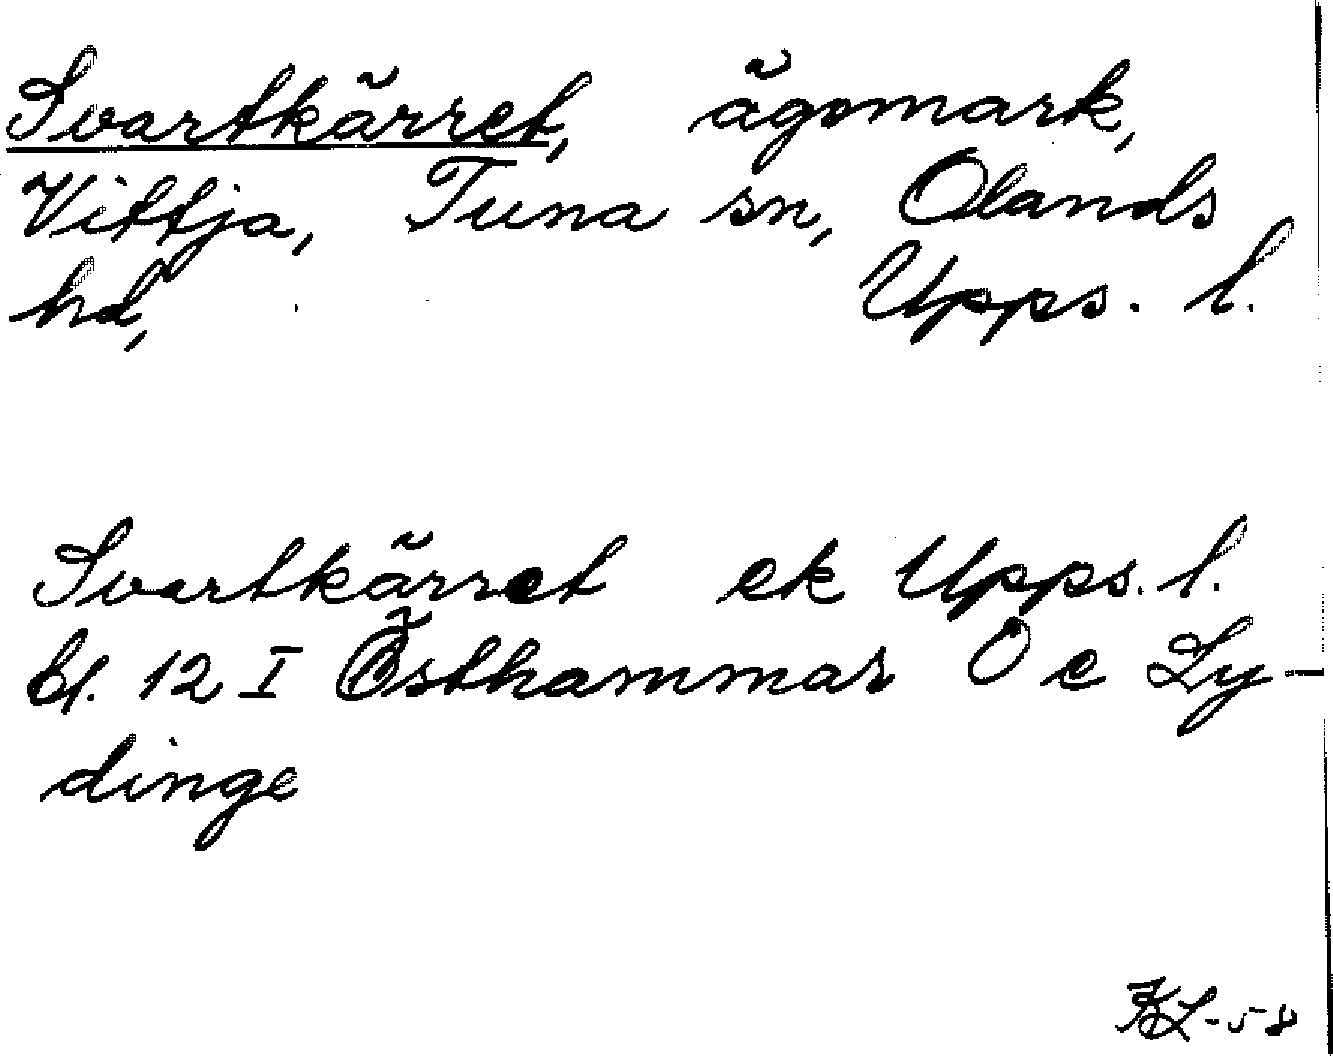 Svartkärret, ägomark,
Vittja, Tuna sn, Olands
hd, Upps. l.
Svartkärret ek Upps. l.
bl. 12 I Östhammar O c Ly-
dinge
KL-58